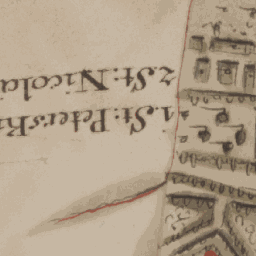 1. St: Peters Ki
2. St: Nicola